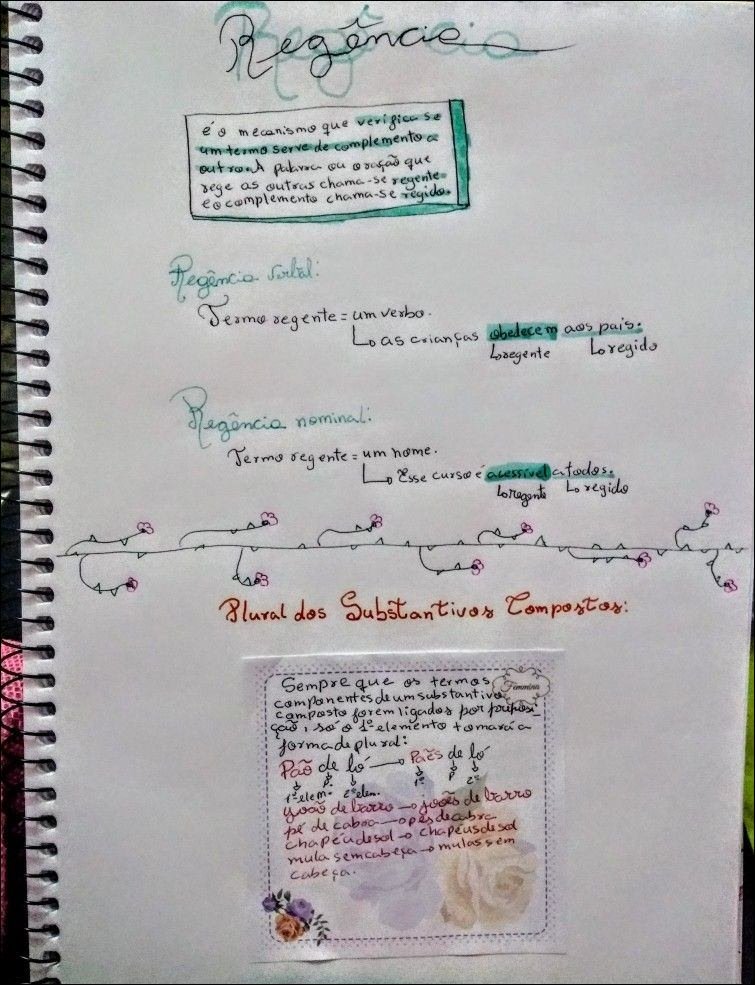 Regência
é o mecanismo que verifica se
um termo serve de complemento a
outro. A palavra ou oração que
rege as outras chama-se regente
e o complemento chama-se regido.
Regência verbal:
Termo regente = um verbo.
as crianças obedecem aos pais.
regente regido
Regência nominal:
Termo regente = um nome.
Esse curso é acessível a todos.
regente regido
Plural dos Substantivos Compostos:
Sempre que os termos
Feminina
componentes de um substantivo
composto forem ligados por preposi-
ção, só o 1º elemento tomará a
forma de plural:
Pão de ló → Pães de ló
1º elem. P. 2º elem. 1º P 2º
joão de barro → joões de barro
pé de cabra → pés de cabra
chapéu de sol → chapéus de sol
mula sem cabeça → mulas sem
cabeça.